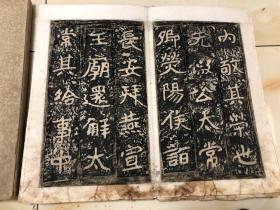 内敬其榮也
先假公太常
卿熒陽侯詣
長安拜燕宣
王廟還解太
常其給事中